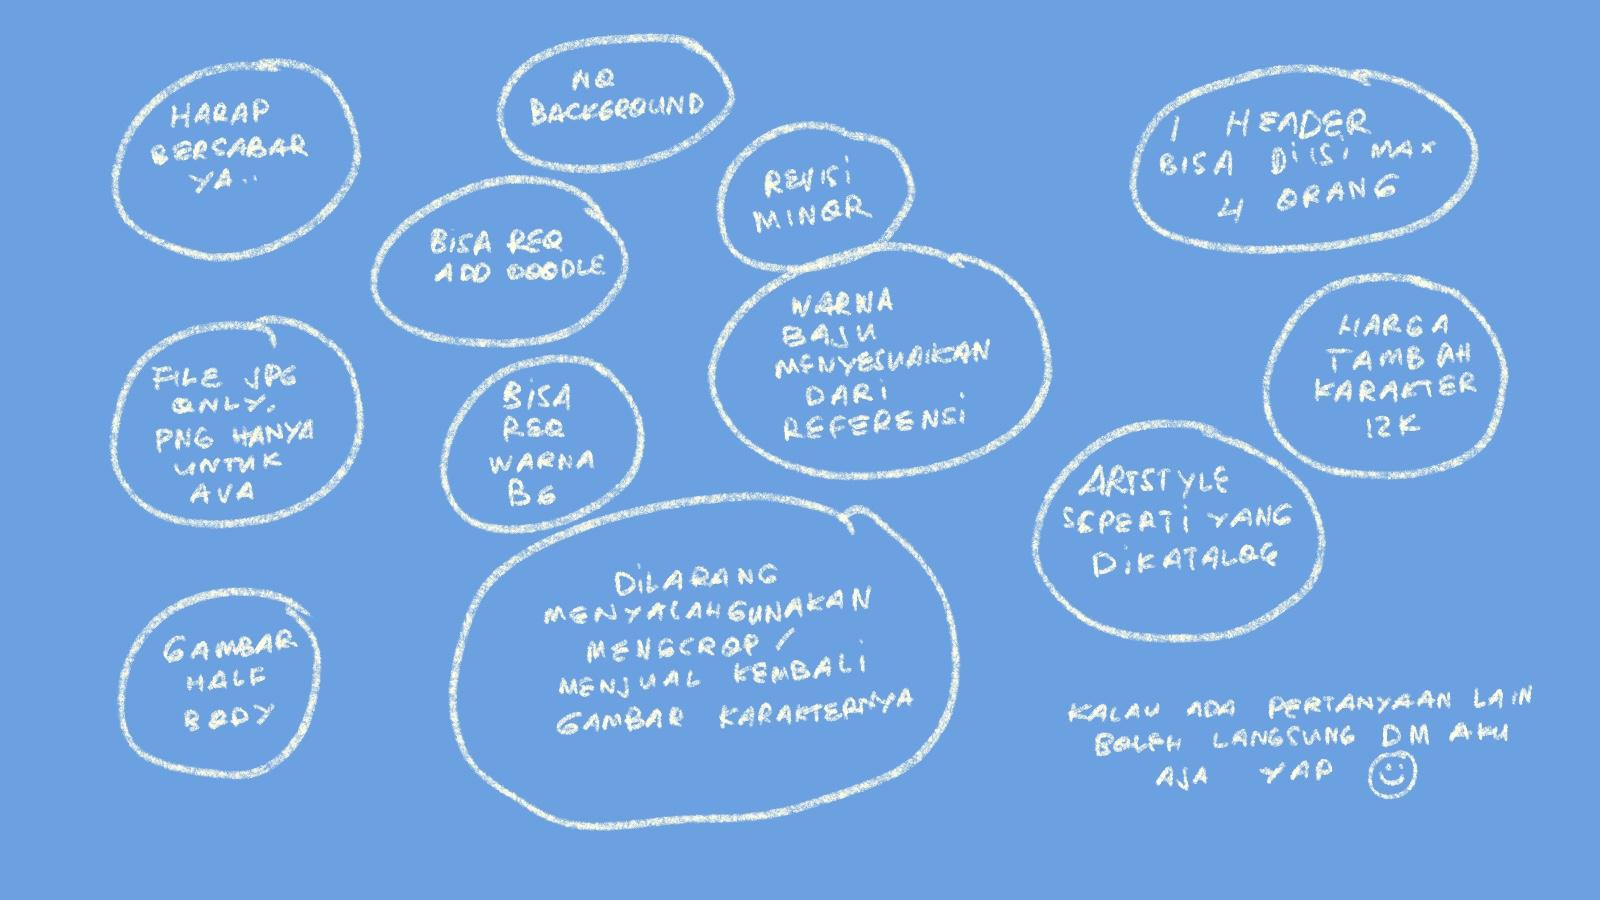 HARAP
BERSABAR
YA..
NO
BACKGROUND
REVISI
MINOR
1 HEADER
BISA DIISI MAX
4 ORANG
BISA REQ
ADD DOODLE
WARNA
BAJU
MENYESUAIKAN
DARI
REFERENSI
HARGA
TAMBAH
KARAKTER
12K
FILE JPG
ONLY.
PNG HANYA
UNTUK
AVA
BISA
REQ
WARNA
BG
ARTSTYLE
SEPERTI YANG
DIKATALOG
DILARANG
MENYALAHGUNAKAN
MENGCROP /
MENJUAL KEMBALI
GAMBAR KARAKTERNYA
GAMBAR
HALF
BODY
KALAU ADA PERTANYAAN LAIN
BOLEH LANGSUNG DM AKU
AJA YAP